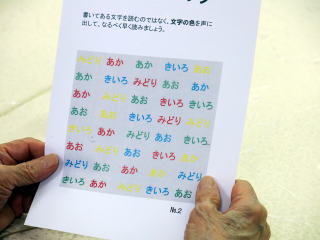 書いてある文字を読むのではなく、文字の色を声に
出して、なるべく早く読みましょう。
みどり あか あか きいろ あお
あか きいろ みどり あお みどり
あか みどり あお きいろ きいろ
あお あお きいろ みどり みどり
きいろ あか みどり あお きいろ
あか みどり あお きいろ あか
みどり あお あか あか みどり
きいろ あか みどり きいろ あお
No.2